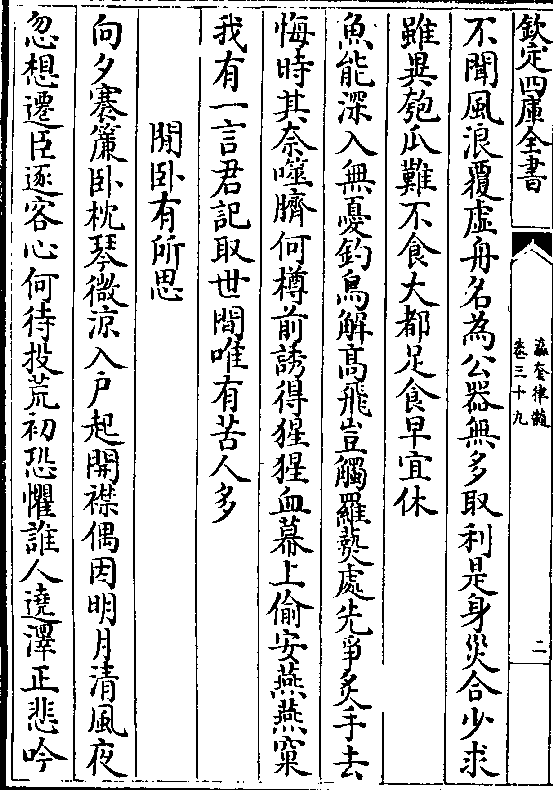 欽定四庫全書
瀛奎律髓
卷三十九
二
不聞風浪覆虛舟名為公器無多取利是身災合少求
雖異匏瓜難不食大都足食早宜休
魚能深入無憂釣鳥解高飛豈觸羅熱處先爭炙手去
悔時其奈噬臍何樽前誘得猩猩血幕上偷安燕燕窠
我有一言君記取世間唯有苦人多
閒卧有所思
向夕褰簾卧枕琴微涼入戶起開襟偶因明月清風夜
忽想遷臣逐客心何待投荒初恐懼誰人遶澤正悲吟